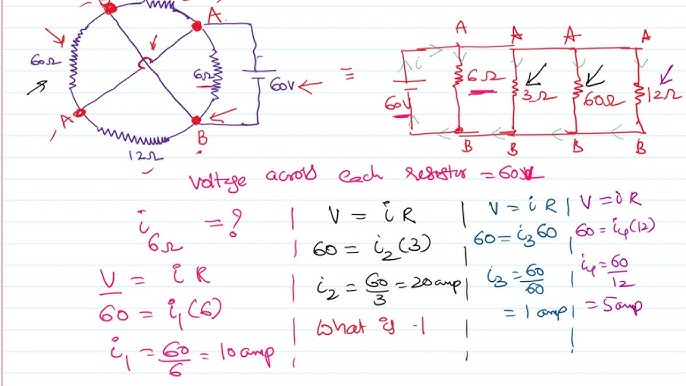 A
A
A
A
A
60Ω
6Ω
60V
≡
i
60V
6Ω
3Ω
60Ω
12Ω
A
B
12Ω
B
B
B
B
Voltage across each resistor = 60V
i6Ω = ?
V = iR
60 = i1(6)
i1 = 60/6 = 10 amp
V = iR
60 = i2(3)
i2 = 60/3 = 20 amp
What is
V = iR
60 = i3 60
i3 = 60/60
= 1 amp
V = iR
60 = i4(12)
i4 = 60/12
= 5 amp